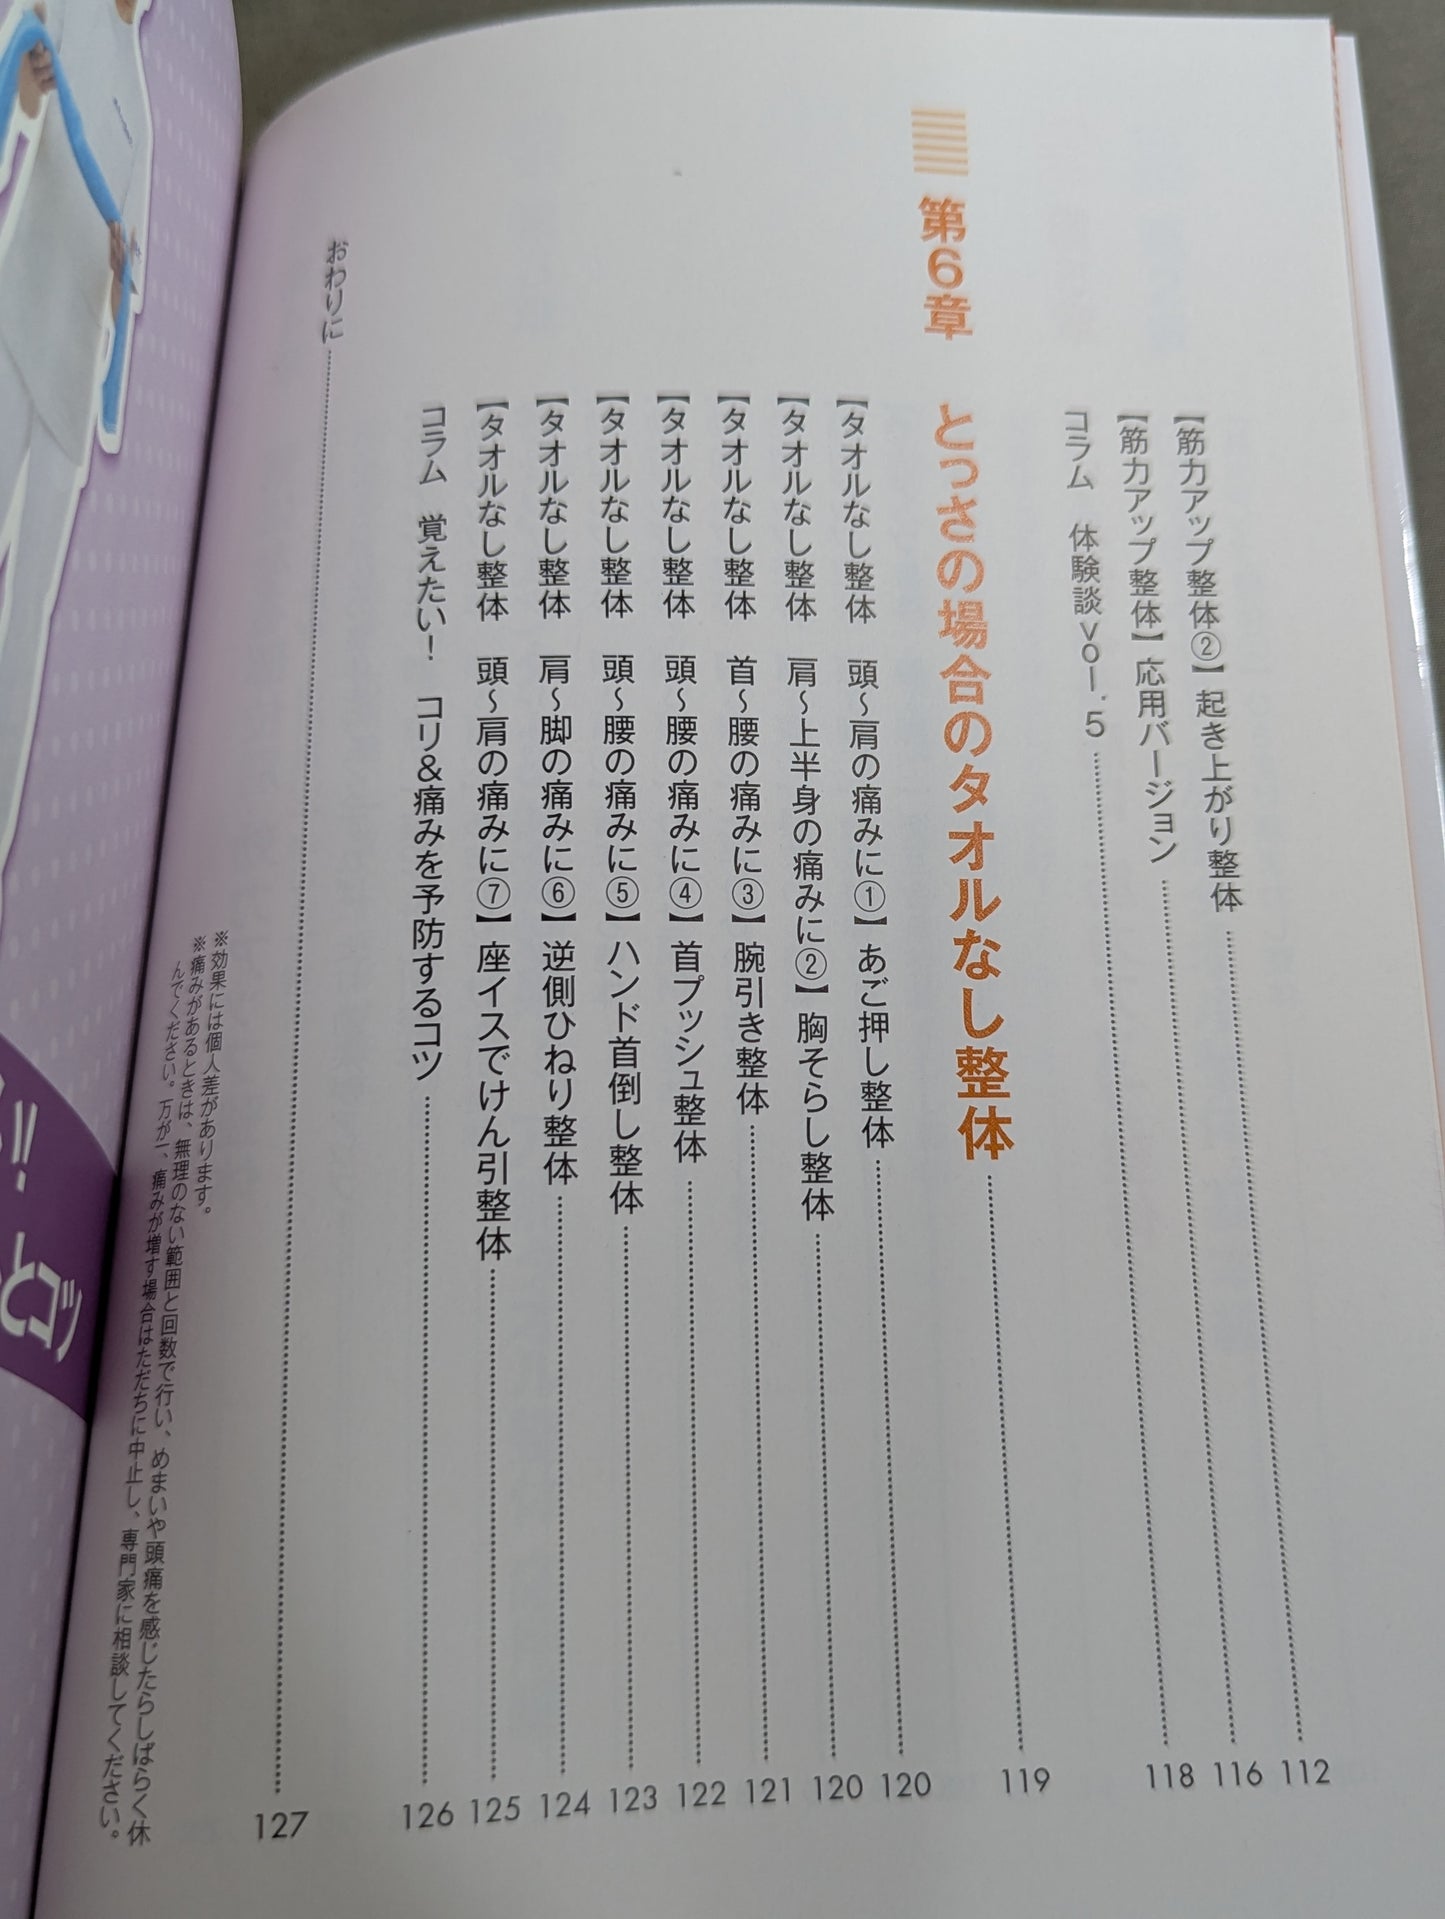 【筋力アップ整体②】起き上がり整体 112
【筋力アップ整体】応用バージョン 116
コラム 体験談vol.5 118
第6章 とっさの場合のタオルなし整体 119
【タオルなし整体 頭〜肩の痛みに①】あご押し整体 120
【タオルなし整体 肩〜上半身の痛みに②】胸そらし整体 120
【タオルなし整体 首〜腰の痛みに③】腕引き整体 121
【タオルなし整体 頭〜腰の痛みに④】首プッシュ整体 122
【タオルなし整体 頭〜腰の痛みに⑤】ハンド首倒し整体 123
【タオルなし整体 肩〜脚の痛みに⑥】逆側ひねり整体 124
【タオルなし整体 頭〜肩の痛みに⑦】座イスでけん引整体 125
コラム 覚えたい！ コリ＆痛みを予防するコツ 126
おわりに 127
※効果には個人差があります。
※痛みがあるときは、無理のない範囲と回数で行い、めまいや頭痛を感じたらしばらく休
んでください。万が一、痛みが増す場合はただちに中止し、専門家に相談してください。